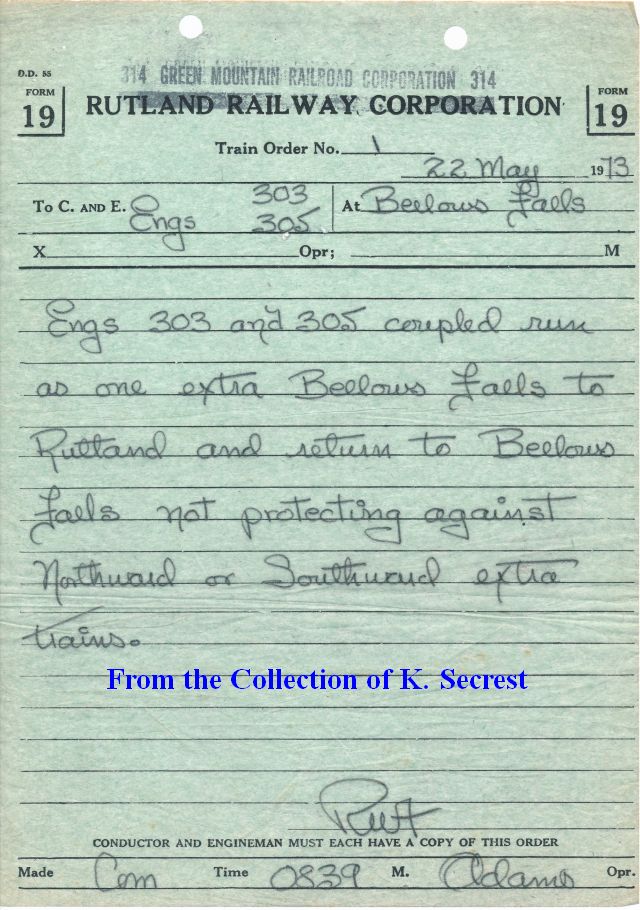 D.D. 55
314 GREEN MOUNTAIN RAILROAD CORPORATION 314
FORM 19 RUTLAND RAILWAY CORPORATION FORM 19
Train Order No. 1
22 May 1973
To C. AND E. Engs 303 305 At Bellows Falls
X Opr; M
Engs 303 and 305 coupled run
as one extra Bellows Falls to
Rutland and return to Bellows
Falls not protecting against
Northward or Southward extra
trains.
From the Collection of K. Secrest
CONDUCTOR AND ENGINEMAN MUST EACH HAVE A COPY OF THIS ORDER
Made Com Time 0839 M. Adams Opr.